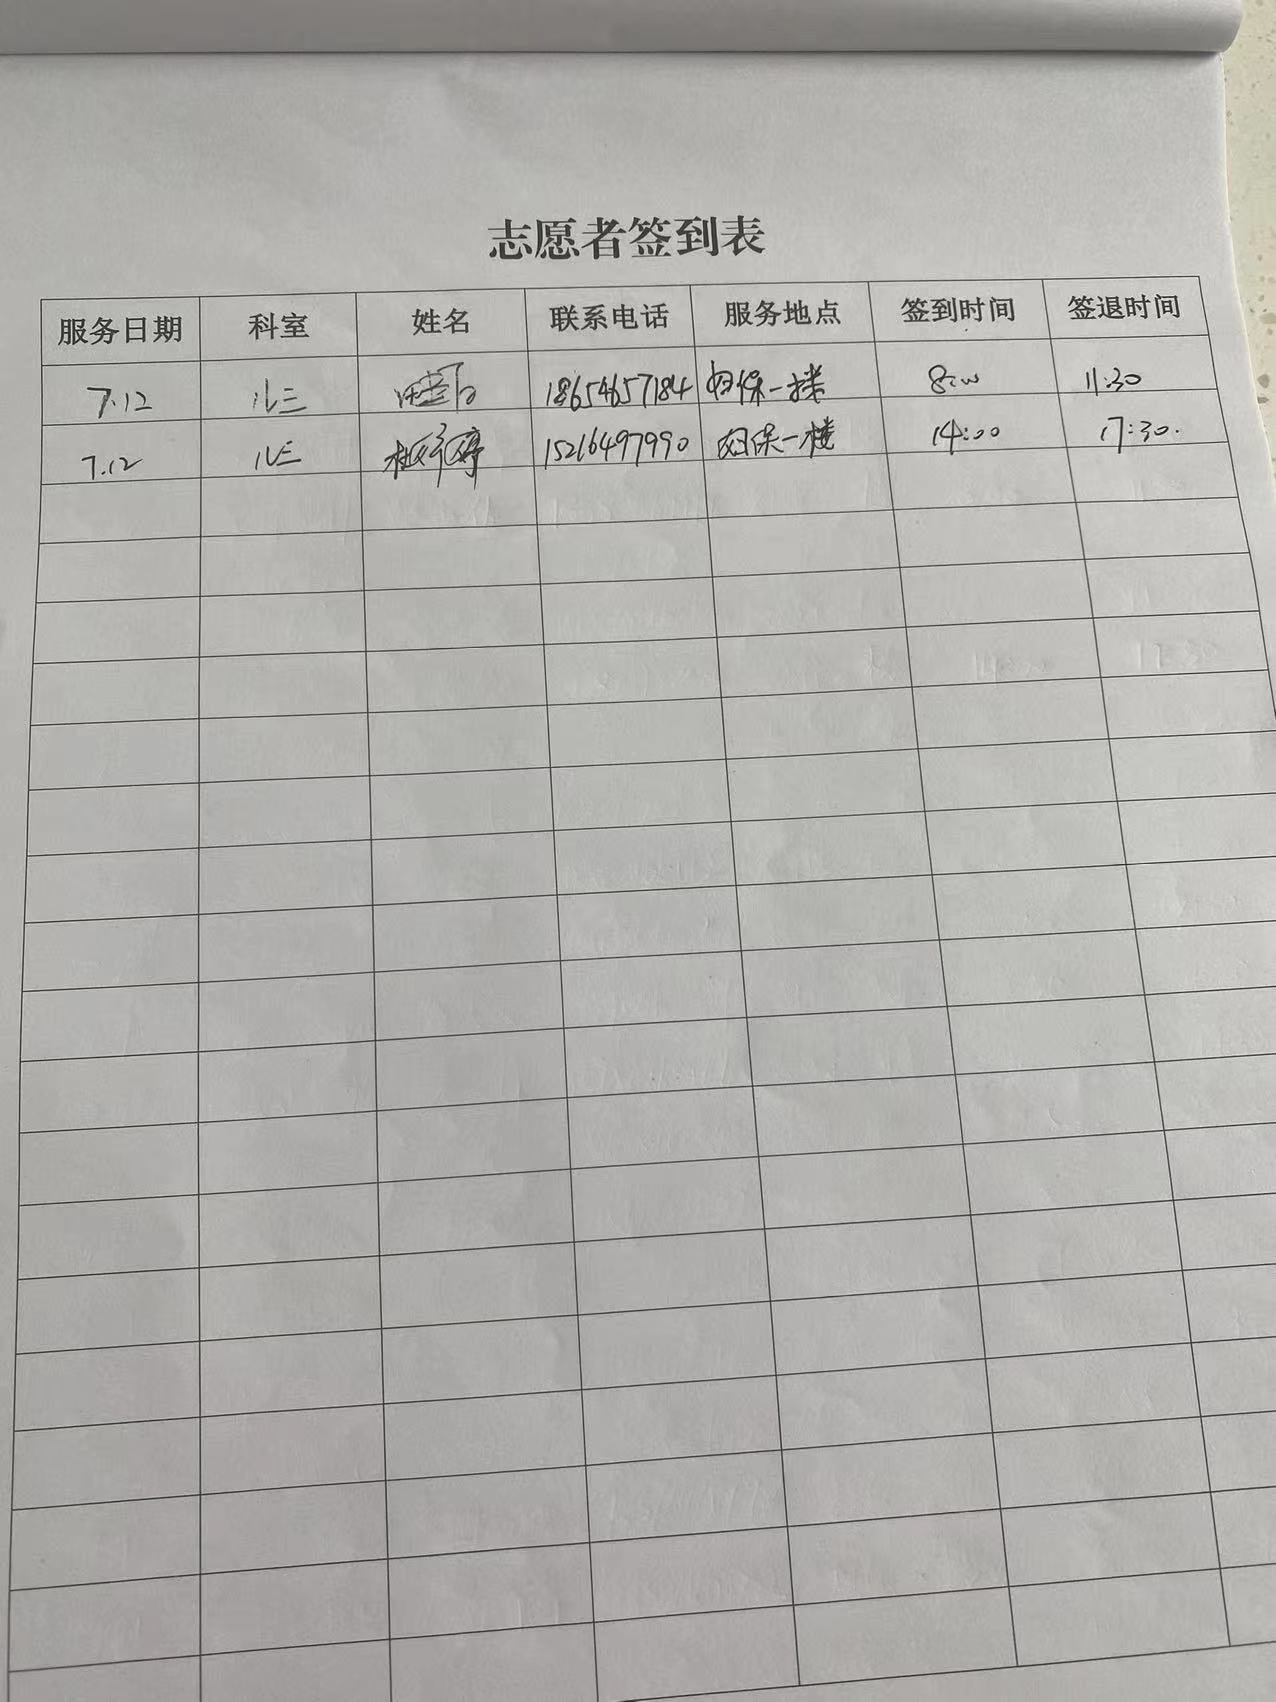 志愿者签到表
服务日期 科室 姓名 联系电话 服务地点 签到时间 签退时间
7.12 儿三 18654657184 妇保一楼 8:00 11:30
7.12 儿三 15216497990 妇保一楼 14:00 17:30.